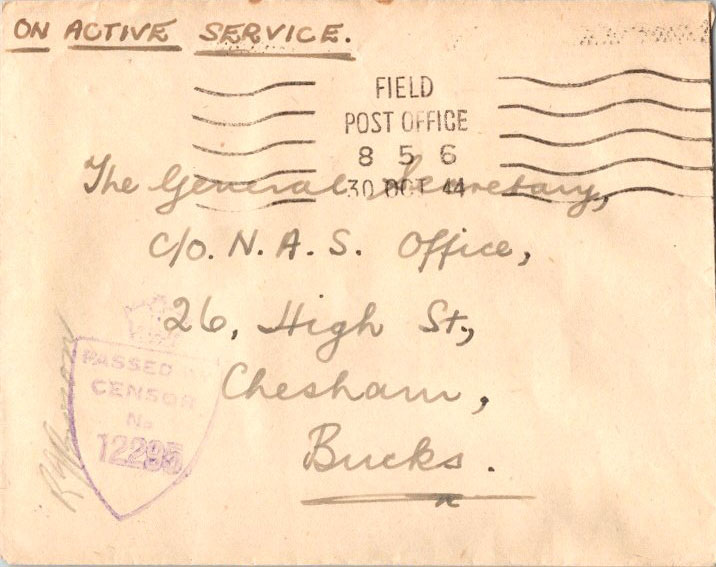 ON ACTIVE SERVICE.
FIELD
POST OFFICE
8 5 6
30 OCT 44
The General Secretary,
c/o. N. A. S. Office,
26, High St.,
Chesham,
Bucks.
PASSED
CENSOR
No
12295